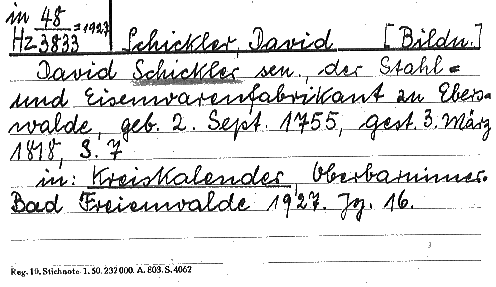 in 48 = 1927
Hz 3833 Schickler, David [Bildn.]
David Schickler sen., der Stahl=
und Eisenwarenfabrikant zu Ebers=
walde, geb. 2. Sept. 1755, gest. 3. März
1818, S. 7
in: Kreiskalender, Oberbarnimer.
Bad Freienwalde 1927. Jg. 16.
Reg. 10. Stichnote. 1. 50. 232000. A. 803. S. 4062